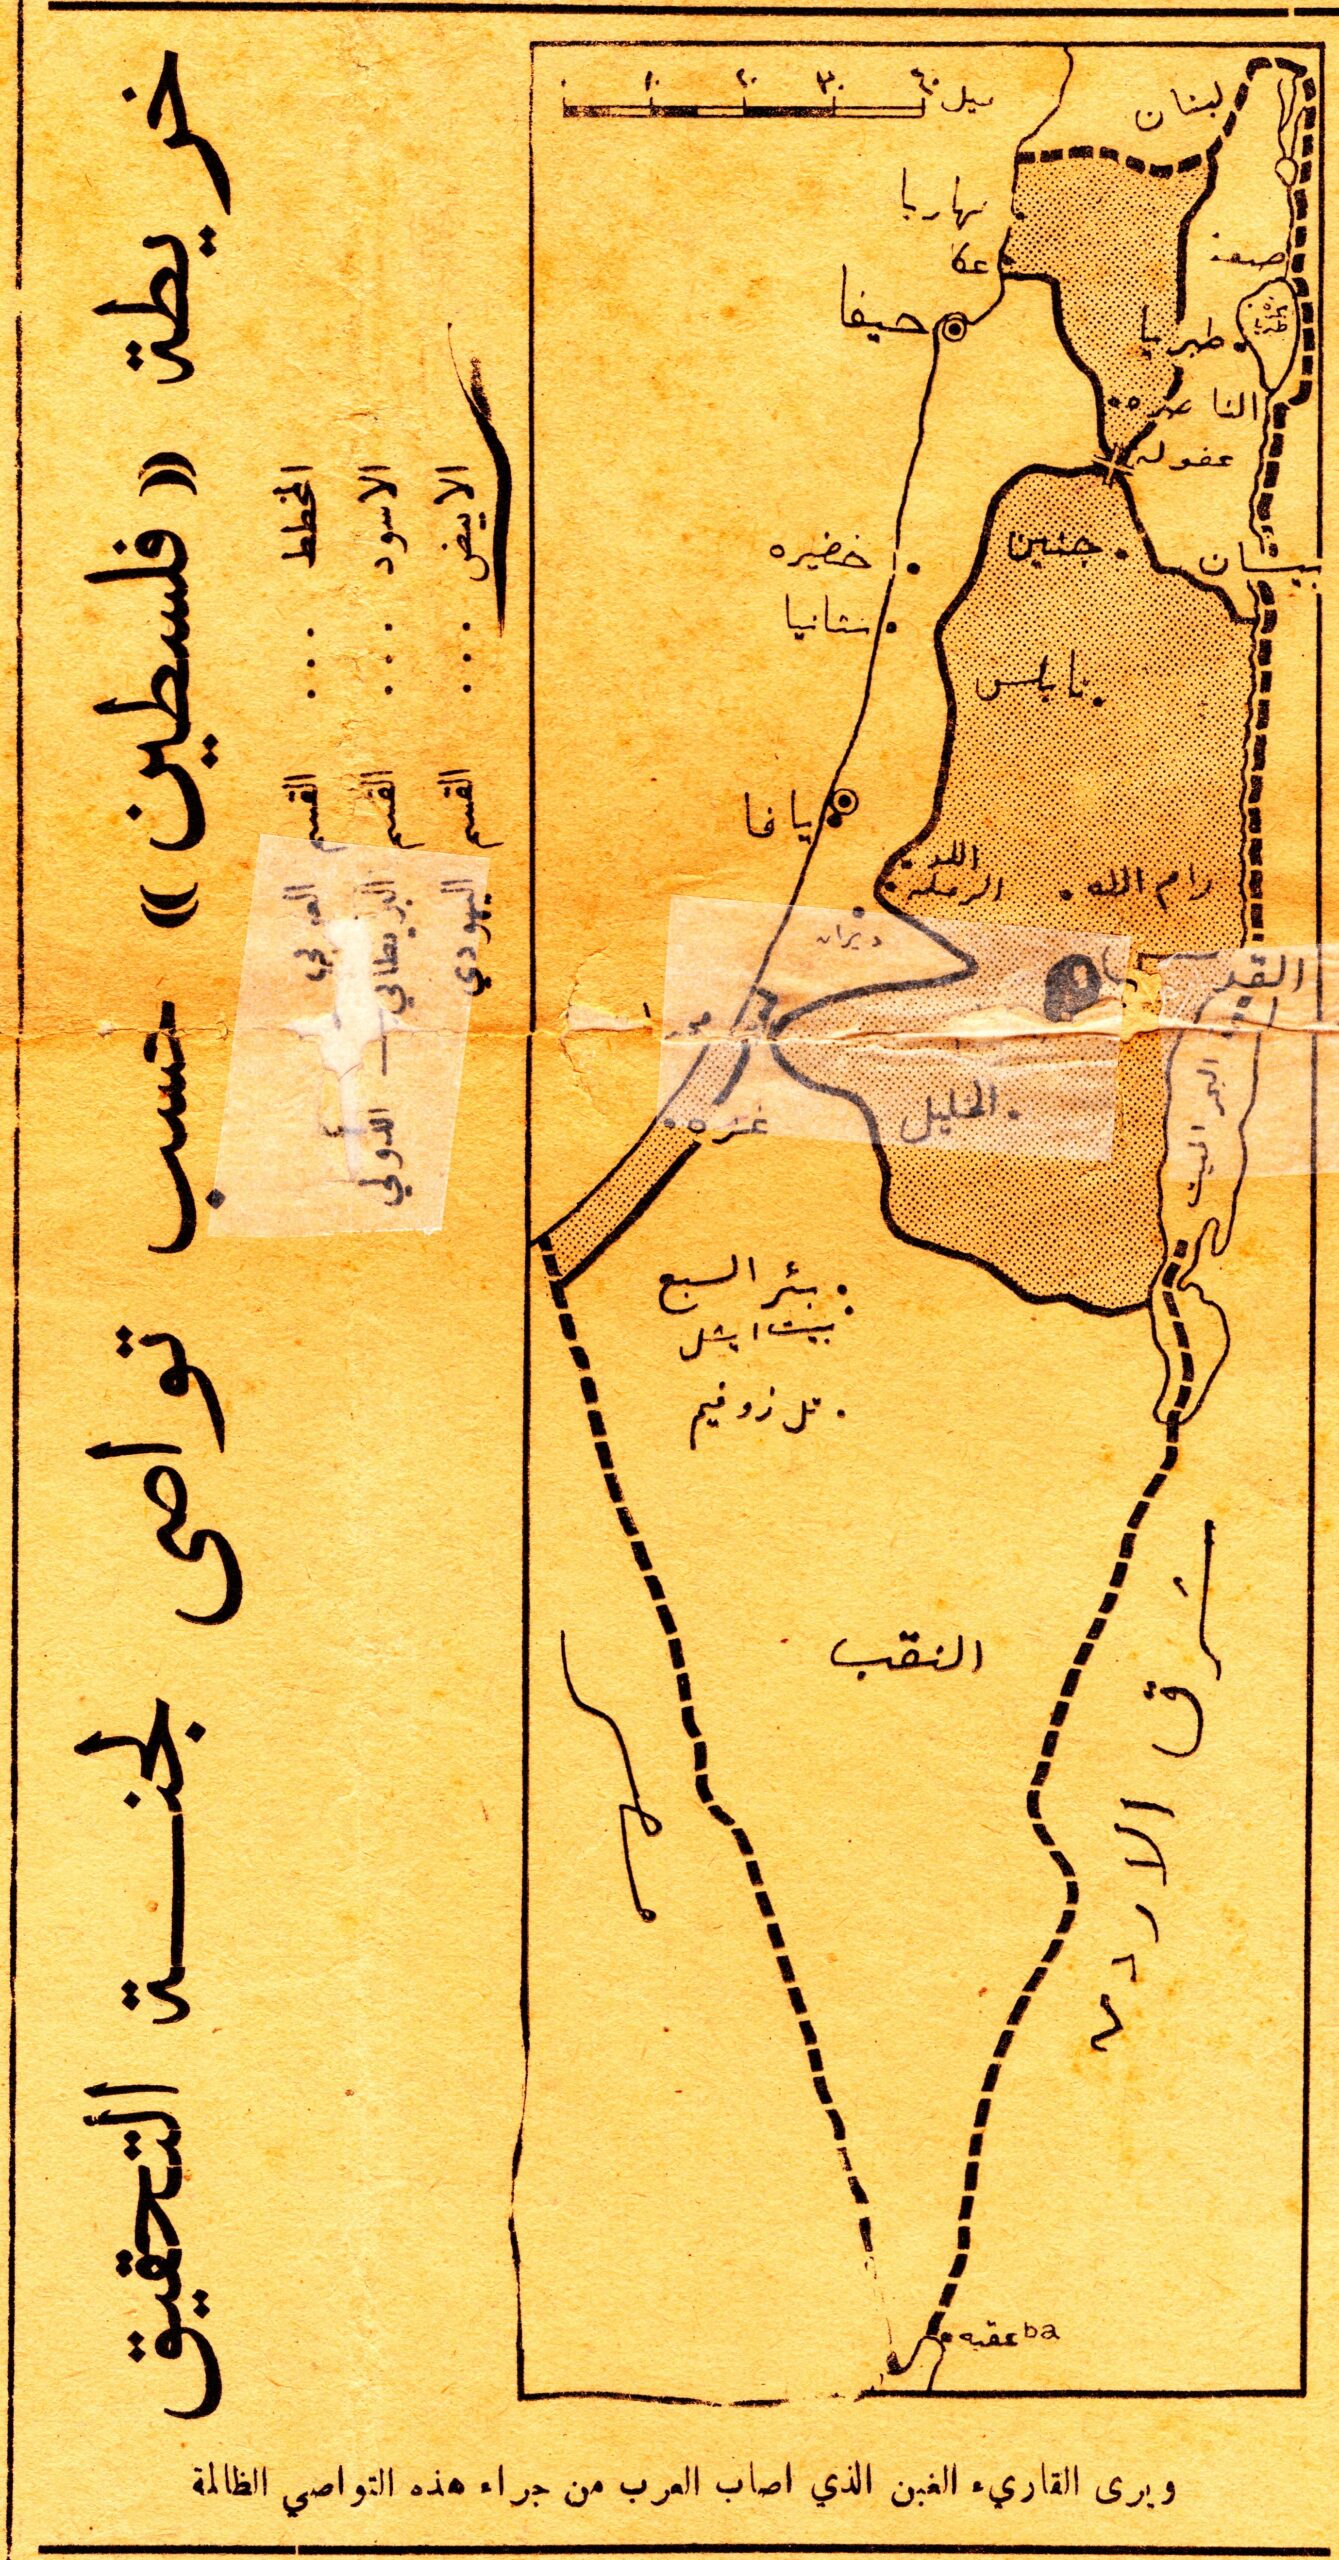 خريطة «فلسطين» حسب تواصي لجنة التحقيق
المخطط ... القسم العربي
الاسود ... القسم البريطاني — الدولي
الابيض ... القسم اليهودي
٠ ١٠ ٢٠ ٣٠ ٤٠ ميل
لبنان
نهاريا
عكا
صفد
حيفا
طبريا
بحيرة طبريا
الناصره
عفوله
جنين
بيسان
خضيره
نتانيا
نابلس
يافا
اللد
الرمله
رام الله
القدس
غزه
الخليل
البحر الميت
بئر السبع
بيت ايشل
تل زوفيم
النقب
مصر
شرق الاردن
عقبه ba
ويرى القاريء الغبن الذي اصاب العرب من جراء هذه التواصي الظالمة